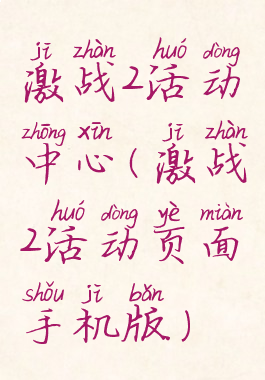 jī zhàn huó dòng
激战2活动
zhōng xīn jī zhàn
中心(激战
huó dòng yè miàn
2活动页面
shǒu jī bǎn
手机版)